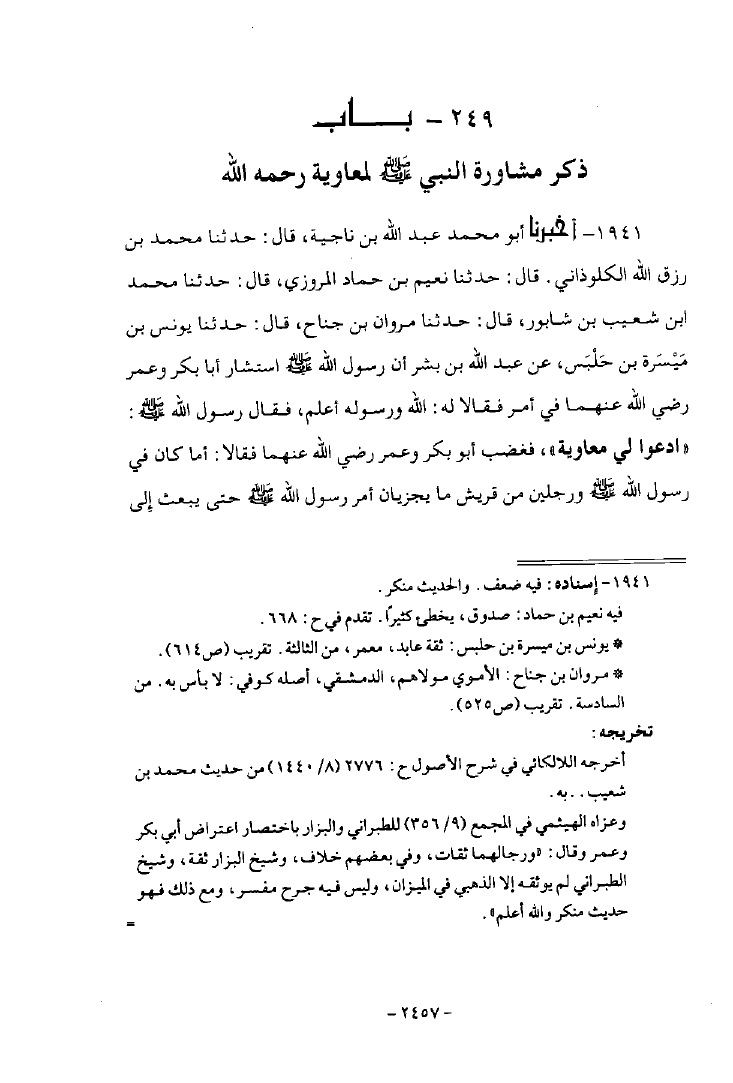 ٢٤٩ - بـــاب
ذكر مشاورة النبي ﷺ لمعاوية رحمه الله
١٩٤١- أخبرنا أبو محمد عبد الله بن ناجية، قال: حدثنا محمد بن
رزق الله الكلوذاني. قال: حدثنا نعيم بن حماد المروزي، قال: حدثنا محمد
ابن شعيب بن شابور، قال: حدثنا مروان بن جناح، قال: حدثنا يونس بن
مَيْسَرة بن حَلْبَس، عن عبد الله بن بشر أن رسول الله ﷺ استشار أبا بكر وعمر
رضي الله عنهما في أمر فقالا له: الله ورسوله أعلم، فقال رسول الله ﷺ:
«ادعوا لي معاوية»، فغضب أبو بكر وعمر رضي الله عنهما فقالا: أما كان في
رسول الله ﷺ ورجلين من قريش ما يجزيان أمر رسول الله ﷺ حتى يبعث إلى
١٩٤١- إسناده: فيه ضعف. والحديث منكر.
فيه نعيم بن حماد: صدوق، يخطئ كثيرًا. تقدم في ح: ٦٦٨.
* يونس بن ميسرة بن حلبس: ثقة عابد، معمر، من الثالثة. تقريب (ص٦١٤).
* مروان بن جناح: الأموي مولاهم، الدمشقي، أصله كوفي: لا بأس به. من
السادسة. تقريب (ص٥٢٥).
تخريجه:
أخرجه اللالكائي في شرح الأصول ح: ٢٧٧٦ (٨/ ١٤٤٠) من حديث محمد بن
شعيب. . به.
وعزاه الهيثمي في المجمع (٩/ ٣٥٦) للطبراني والبزار باختصار اعتراض أبي بكر
وعمر وقال: «ورجالهما ثقات، وفي بعضهم خلاف، وشيخ البزار ثقة، وشيخ
الطبراني لم يوثقه إلا الذهبي في الميزان، وليس فيه جرح مفسر، ومع ذلك فهو
حديث منكر والله أعلم».
=
-٢٤٥٧-